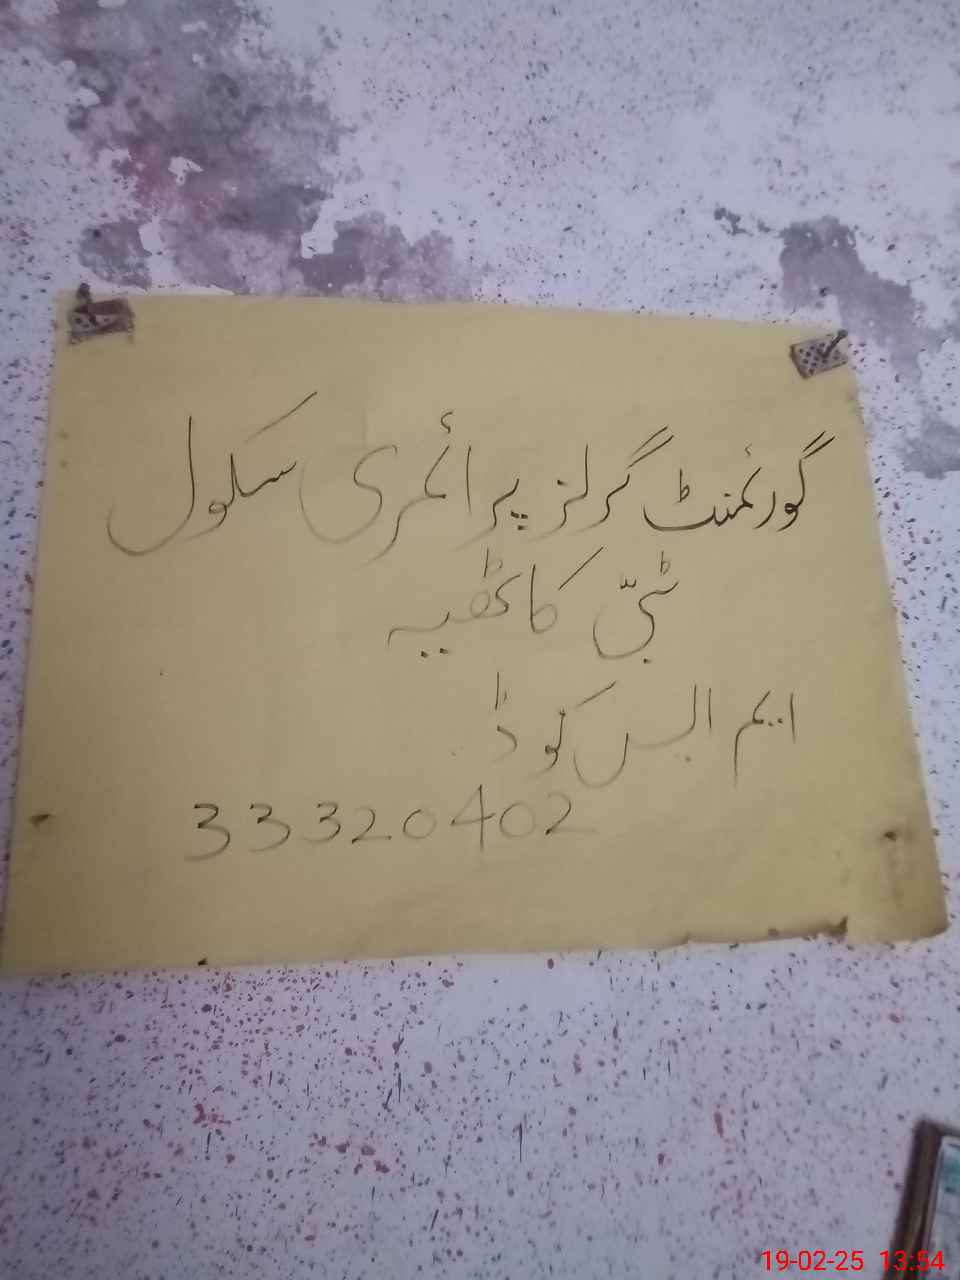 گورئمنٹ گرلز پرائمری سکول
ٹبّی کاٹھیہ
ایم ایس کوڈ
33320402
19-02-25 13:54